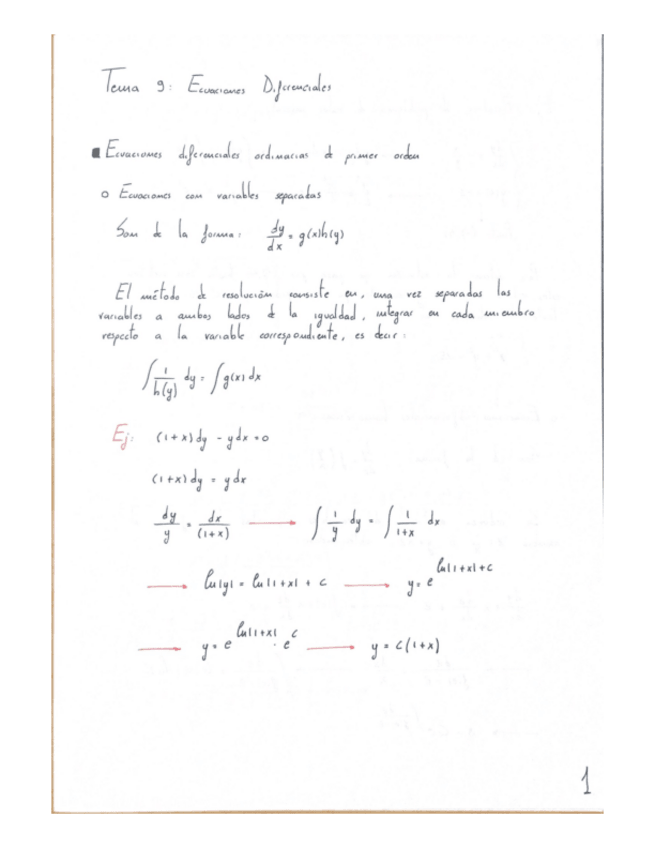 Tema 9: Ecuaciones Diferenciales
■ Ecuaciones diferenciales ordinarias de primer orden
○ Ecuaciones con variables separadas
Son de la forma: dy/dx = g(x)h(y)
El método de resolución consiste en, una vez separadas las
variables a ambos lados de la igualdad, integrar en cada miembro
respecto a la variable correspondiente, es decir:
∫ 1/h(y) dy = ∫ g(x) dx
Ej: (1+x)dy - ydx = 0
(1+x)dy = ydx
dy/y = dx/(1+x) → ∫ 1/y dy = ∫ 1/1+x dx
→ ln|y| = ln|1+x| + c → y = e^ln|1+x|+c
→ y = e^ln|1+x| · e^c → y = c(1+x)
1